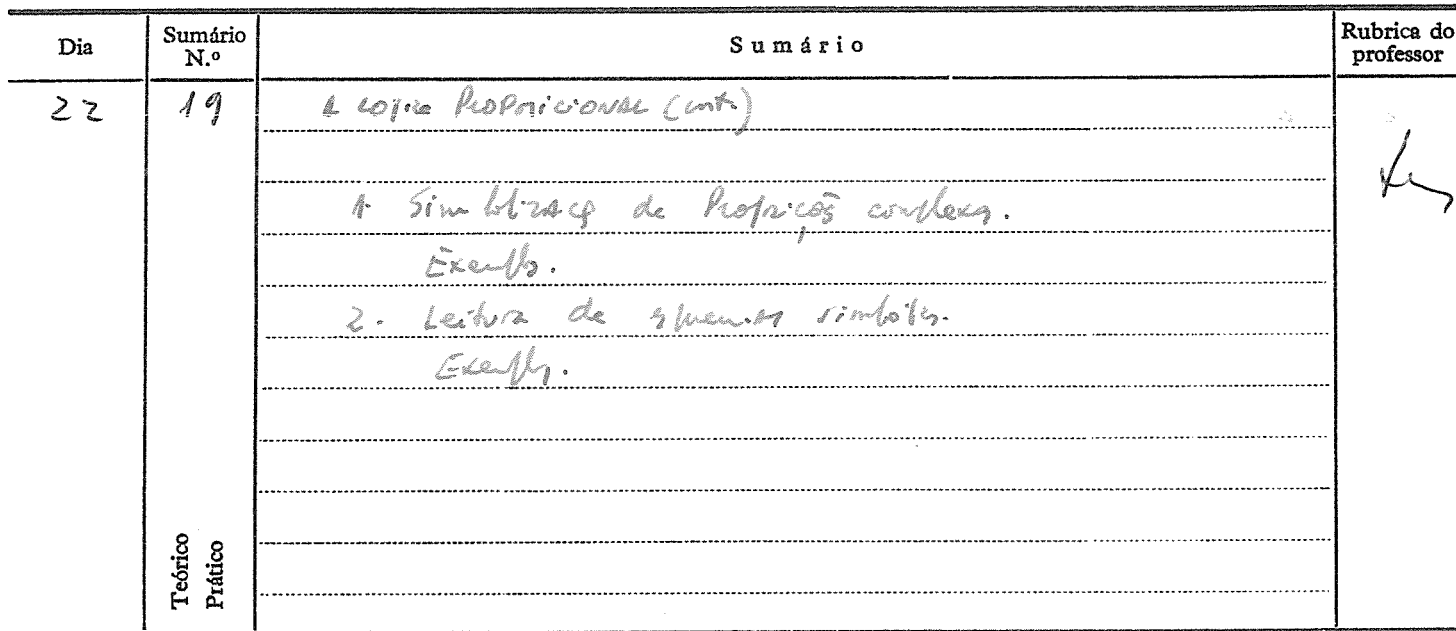 Dia
Sumário N.º
Sumário
Rubrica do professor
22
19
A Logica Proposicional (cont.)
1. Simbolização de Proposições complexas.
Exemplos.
2. Leitura de esquemas simbólicos.
Exemplos.
Teórico
Prático